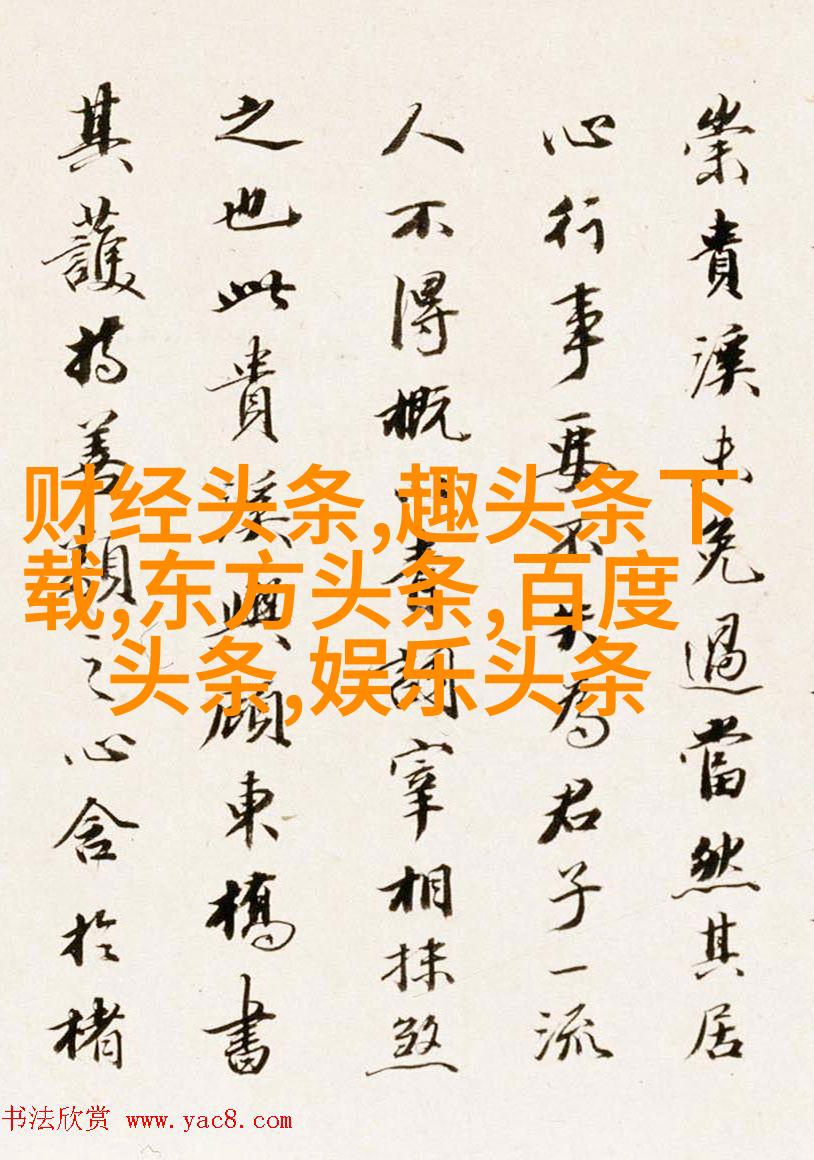 崇貴溪未免過當然其居
心行事要不失為君子一流
人不得概以青詞宰相抹煞
之也此貴溪與顧東橋書
其護持善類之心含於楮
财经头条,趣头条下
载,东方头条,百度
头条,娱乐头条
书法欣赏 www.yac8.com